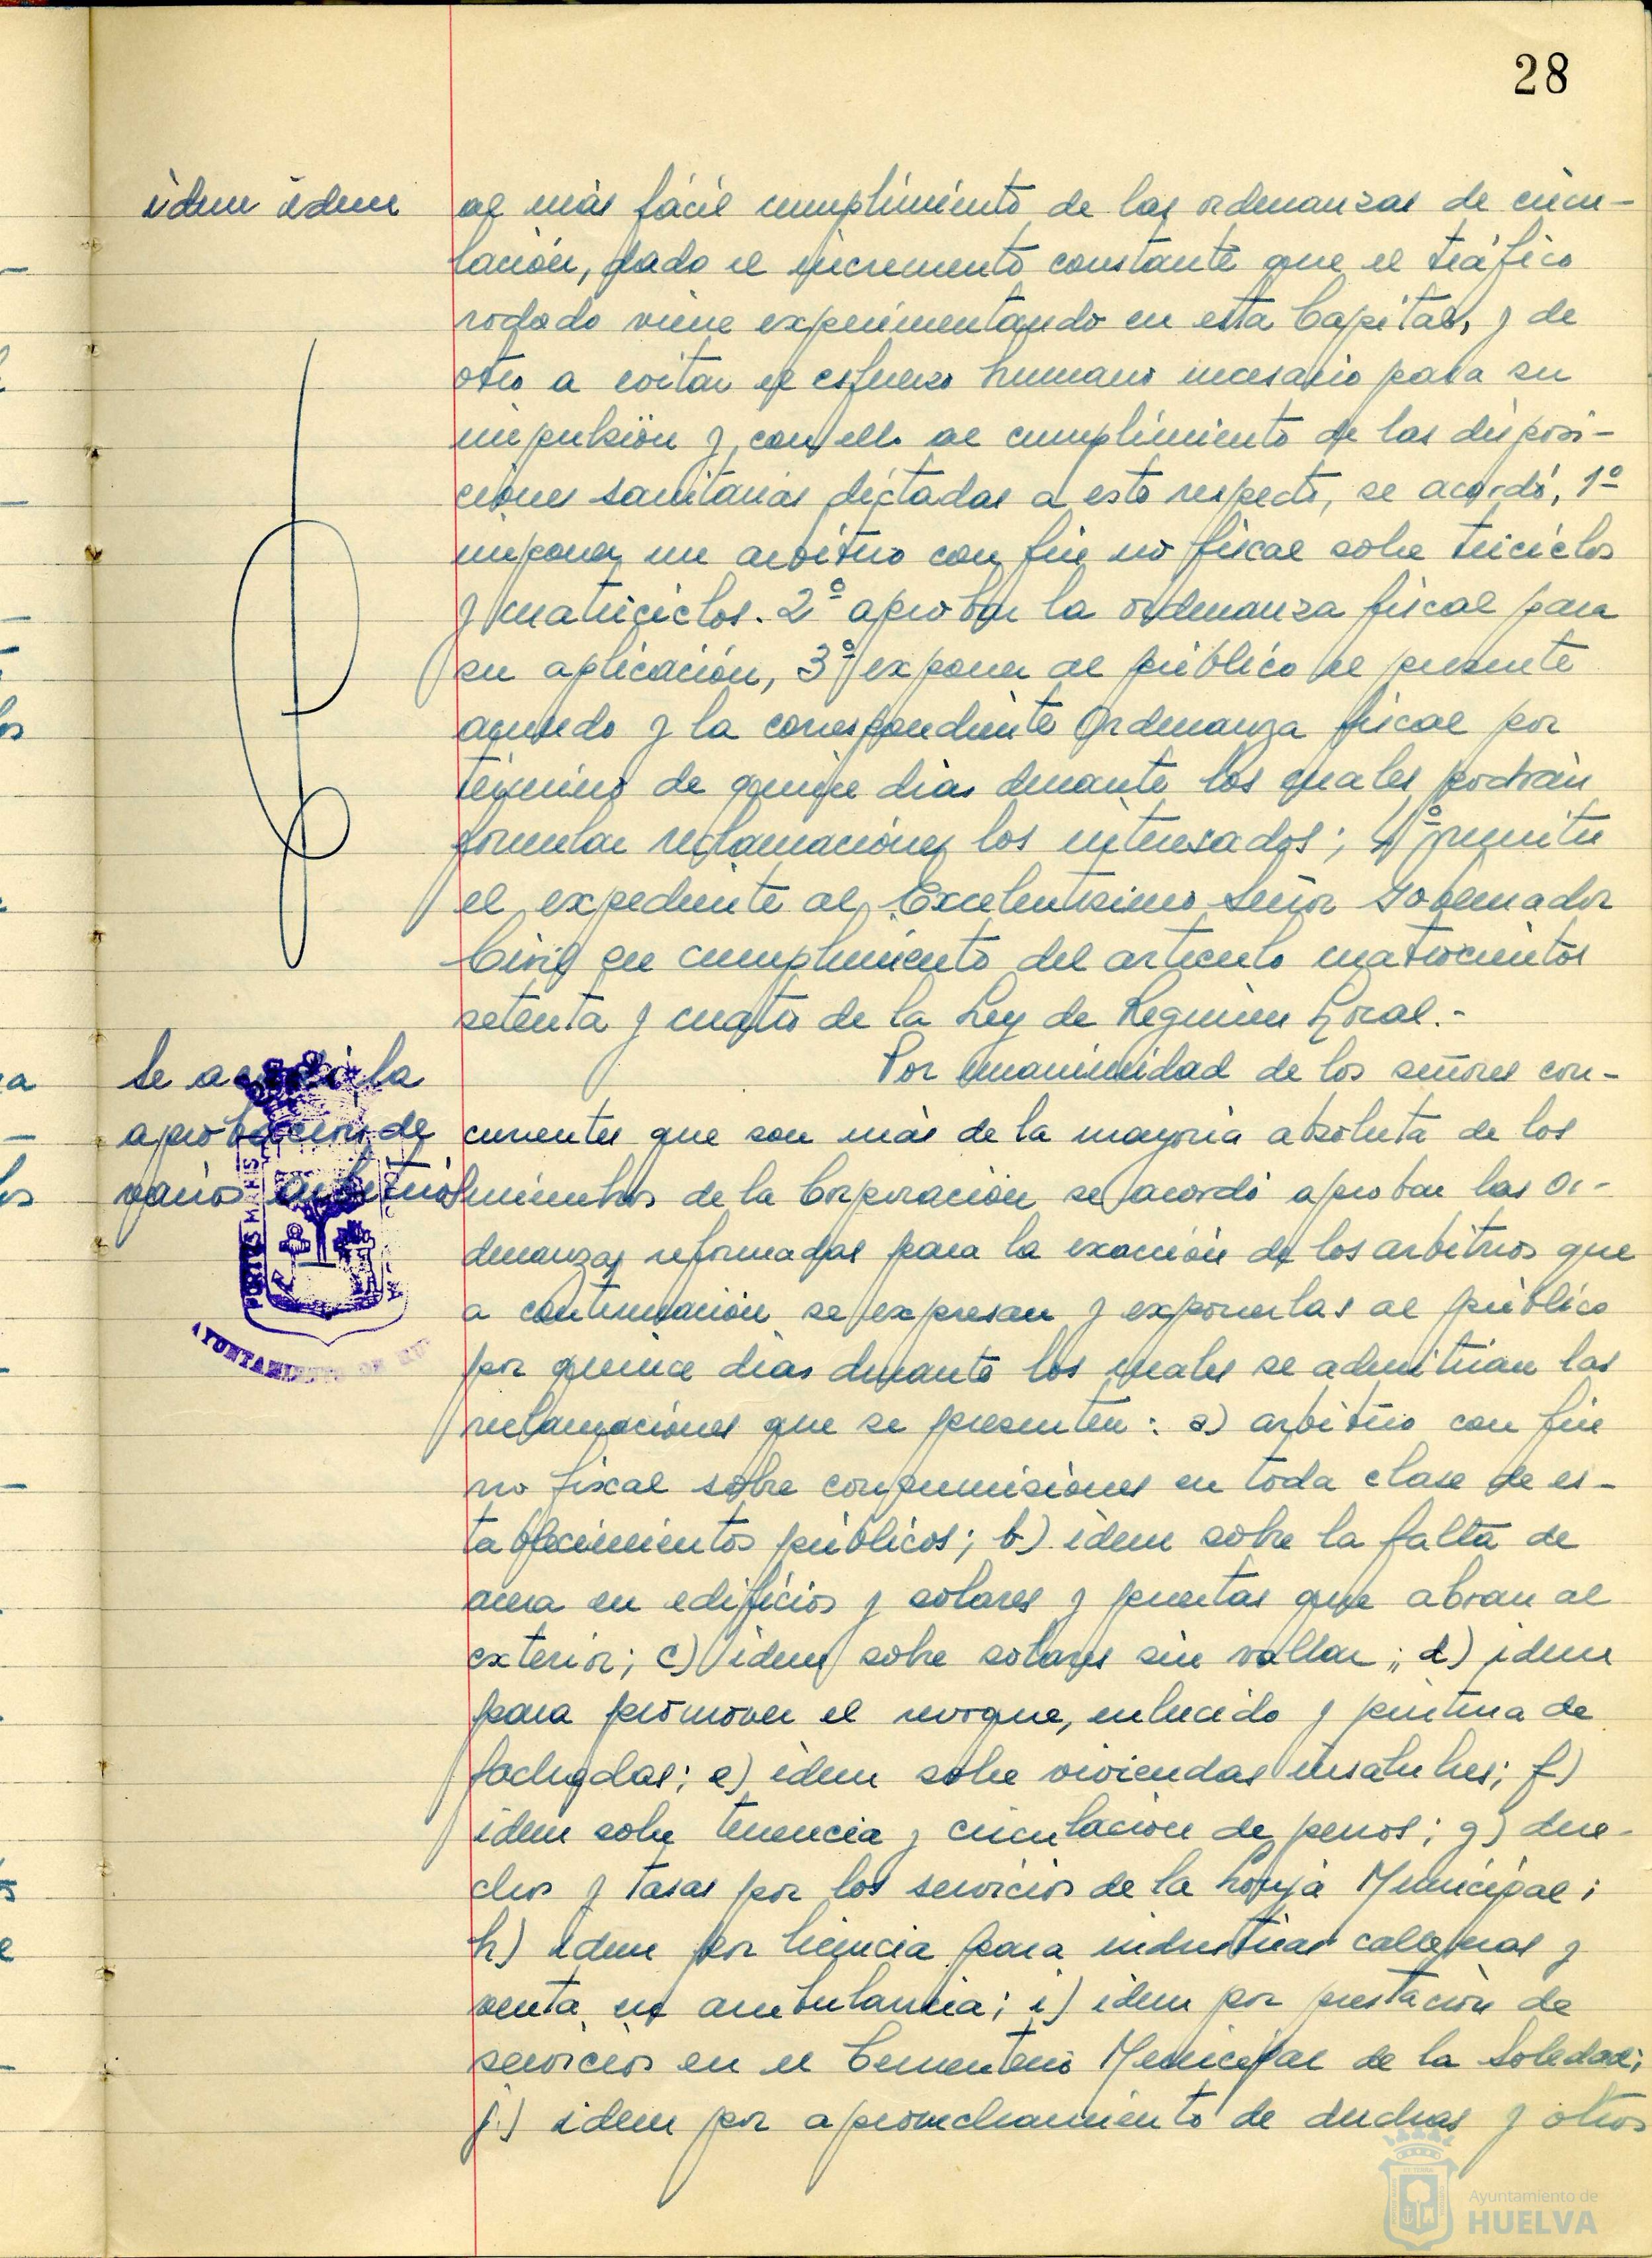 28
idem idem
al más fácil cumplimiento de las ordenanzas de circu-
lación, dado el incremento constante que el tráfico
rodado viene experimentando en esta Capital, y de
otro a evitar el esfuerzo humano necesario para su
impulsión y, con ello al cumplimiento de las disposi-
ciones sanitarias dictadas a este respecto, se acordó, 1º
imponer un arbitrio con fin no fiscal sobre triciclos
y matriciclos. 2º aprobar la ordenanza fiscal para
su aplicación, 3º exponer al público el presente
acuerdo y la correspondiente Ordenanza fiscal por
término de quince días durante los cuales podrán
formular reclamaciones los interesados; 4º remitir
el expediente al Excelentísimo Señor Gobernador
Civil en cumplimiento del artículo cuatrocientos
setenta y cuatro de la Ley de Régimen Local.-
Se acordó la
aprobación de
varios arbitrios
Por unanimidad de los señores con-
currentes que son más de la mayoría absoluta de los
miembros de la Corporación se acordó aprobar las or-
denanzas reformadas para la exacción de los arbitrios que
a continuación se expresan y exponerlas al público
por quince días durante los cuales se admitirían las
reclamaciones que se presenten: a) arbitrio con fin
no fiscal sobre consumisiones en toda clase de es-
tablecimientos públicos; b) idem sobre la falta de
acera en edificios y solares y puertas que abran al
exterior; c) idem sobre solares sin vallar; d) idem
para promover el revoque, enlucido y pintura de
fachadas; e) idem sobre viviendas insalubres; f)
idem sobre tenencia y circulación de perros; g) dere-
chos y tasas por los servicios de la Lonja Municipal;
h) idem por licencia para industrias callejeras y
venta en ambulancia; i) idem por prestación de
servicios en el Cementerio Municipal de la Soledad;
j) idem por aprovechamiento de duchas y otros
AYUNTAMIENTO DE
Ayuntamiento de
HUELVA